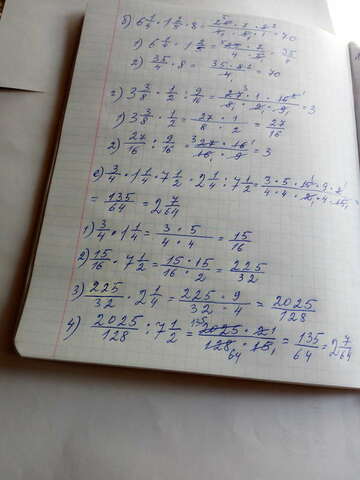 б) 6 1/4 · 1 2/5 · 8 = 25 · 7 · 8² / 4₁ · 5₁ · 1 = 70
1) 6 1/4 · 1 2/5 = 25 · 7 / 4 · 5 = 35/4
2) 35/4 · 8 = 35 · 8² / 4₁ = 70
г) 3 3/8 · 1/2 : 9/16 = 27³ · 1 · 16¹ / 8₁ · 2₁ · 9₁ = 3
1) 3 3/8 · 1/2 = 27 · 1 / 8 · 2 = 27/16
2) 27/16 : 9/16 = ³27 · 16¹ / 16₁ · 9 = 3
е) 3/4 · 1 1/4 · 7 1/2 · 2 1/4 : 7 1/2 = 3 · 5 · 15¹ · 9 · 2¹ / 4 · 4 · 2₁ · 4 · 15₁ =
= 135/64 = 2 7/64
1) 3/4 · 1 1/4 = 3 · 5 / 4 · 4 = 15/16
2) 15/16 · 7 1/2 = 15 · 15 / 16 · 2 = 225/32
3) 225/32 · 2 1/4 = 225 · 9 / 32 · 4 = 2025/128
4) 2025/128 : 7 1/2 = ¹³⁵2025 · 2¹ / 128₆₄ · 15₁ = 135/64 = 2 7/64